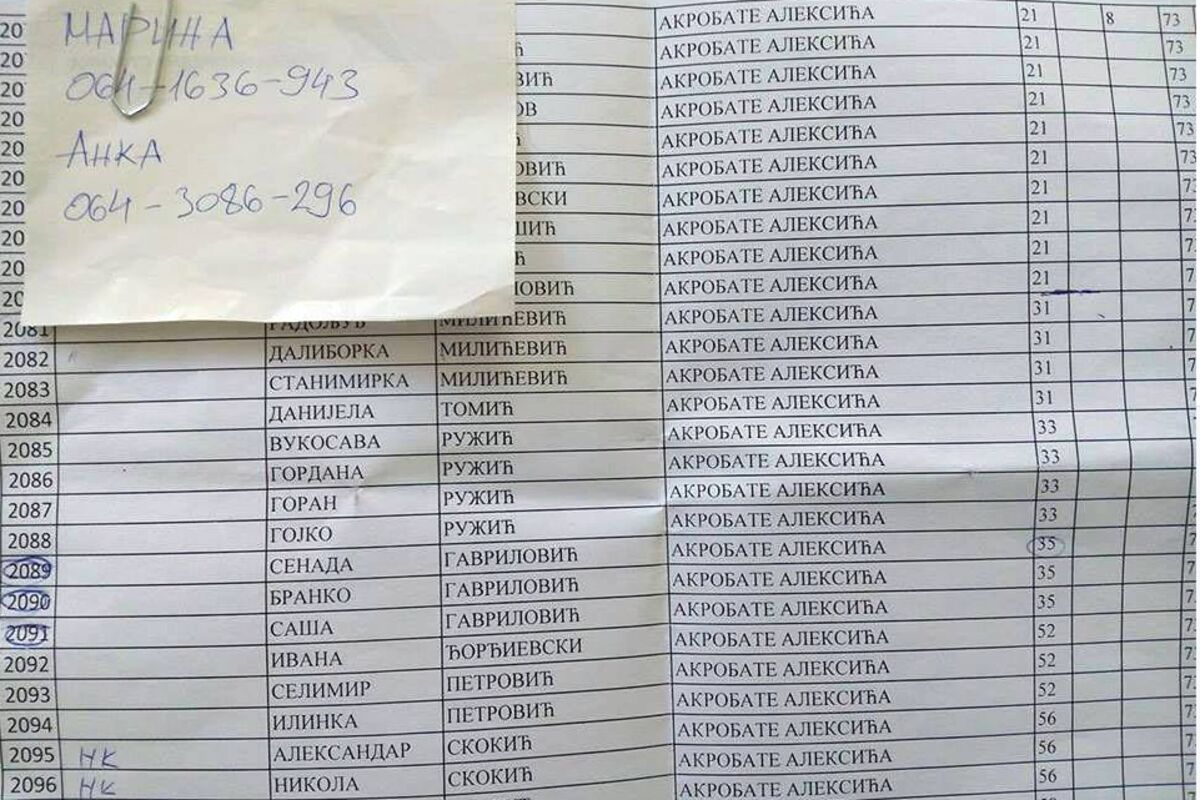 МАРИНА
064-1636-943
АНКА
064-3086-296
20 АКРОБАТЕ АЛЕКСИЋА 21 8 73
20 Ћ АКРОБАТЕ АЛЕКСИЋА 21 73
20 ВИЋ АКРОБАТЕ АЛЕКСИЋА 21 73
20 ОВ АКРОБАТЕ АЛЕКСИЋА 21 73
20 Ћ АКРОБАТЕ АЛЕКСИЋА 21 73
20 ОВИЋ АКРОБАТЕ АЛЕКСИЋА 21 73
20 ВСКИ АКРОБАТЕ АЛЕКСИЋА 21 7
20 ШИЋ АКРОБАТЕ АЛЕКСИЋА 21 7
20 Ћ АКРОБАТЕ АЛЕКСИЋА 21 7
20 ЛОВИЋ АКРОБАТЕ АЛЕКСИЋА 21 7
2081 РАДОЉУБ МИЛИЋЕВИЋ АКРОБАТЕ АЛЕКСИЋА 31 7
2082 ДАЛИБОРКА МИЛИЋЕВИЋ АКРОБАТЕ АЛЕКСИЋА 31 7
2083 СТАНИМИРКА МИЛИЋЕВИЋ АКРОБАТЕ АЛЕКСИЋА 31 7
2084 ДАНИЈЕЛА ТОМИЋ АКРОБАТЕ АЛЕКСИЋА 31 7
2085 ВУКОСАВА РУЖИЋ АКРОБАТЕ АЛЕКСИЋА 33
2086 ГОРДАНА РУЖИЋ АКРОБАТЕ АЛЕКСИЋА 33
2087 ГОРАН РУЖИЋ АКРОБАТЕ АЛЕКСИЋА 33
2088 ГОЈКО РУЖИЋ АКРОБАТЕ АЛЕКСИЋА 33
2089 СЕНАДА ГАВРИЛОВИЋ АКРОБАТЕ АЛЕКСИЋА 35 7
2090 БРАНКО ГАВРИЛОВИЋ АКРОБАТЕ АЛЕКСИЋА 35 7
2091 САША ГАВРИЛОВИЋ АКРОБАТЕ АЛЕКСИЋА 35 7
2092 ИВАНА ЂОРЂИЕВСКИ АКРОБАТЕ АЛЕКСИЋА 52 7
2093 СЕЛИМИР ПЕТРОВИЋ АКРОБАТЕ АЛЕКСИЋА 52 7
2094 ИЛИНКА ПЕТРОВИЋ АКРОБАТЕ АЛЕКСИЋА 52 7
2095 НК АЛЕКСАНДАР СКОКИЋ АКРОБАТЕ АЛЕКСИЋА 56 7
2096 НК НИКОЛА СКОКИЋ АКРОБАТЕ АЛЕКСИЋА 56 7
АКРОБАТЕ АЛЕКСИЋА 56 7